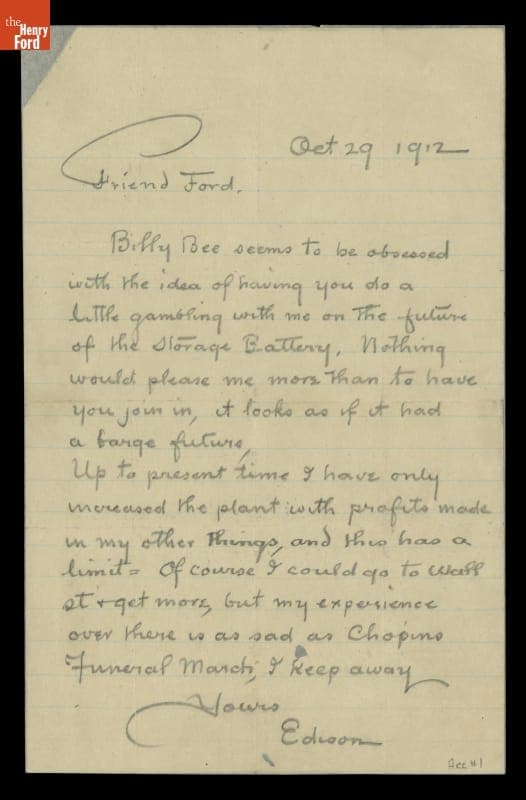 the
Henry
Ford
Oct 29 1912
Friend Ford.
Billy Bee seems to be obsessed
with the idea of having you do a
little gambling with me on the future
of the Storage Battery, Nothing
would please me more than to have
you join in, it looks as if it had
a large future,
Up to present time I have only
increased the plant with profits made
in my other things, and this has a
limit= Of course I could go to Wall
st & get more, but my experience
over there is as sad as Chopins
Funeral March, I keep away
Yours
Edison
Acc #1